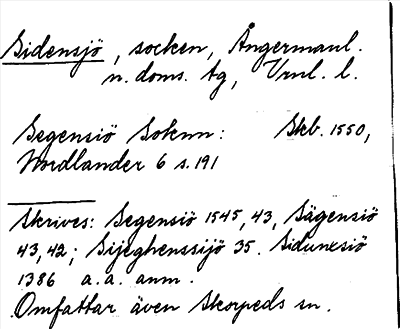 Sidensjö, socken, Ångermanl.
n. doms. tg, Vrnl. l.
Segensiö Soknn: Skb. 1550,
Nordlander 6 s. 191
Skrives: Segensiö 1545, 43, Sägensiö
43, 42; Sijeghenssijö 35. Sidunesiö
1386 a.a. anm.
Omfattar även Skorpeds sn.